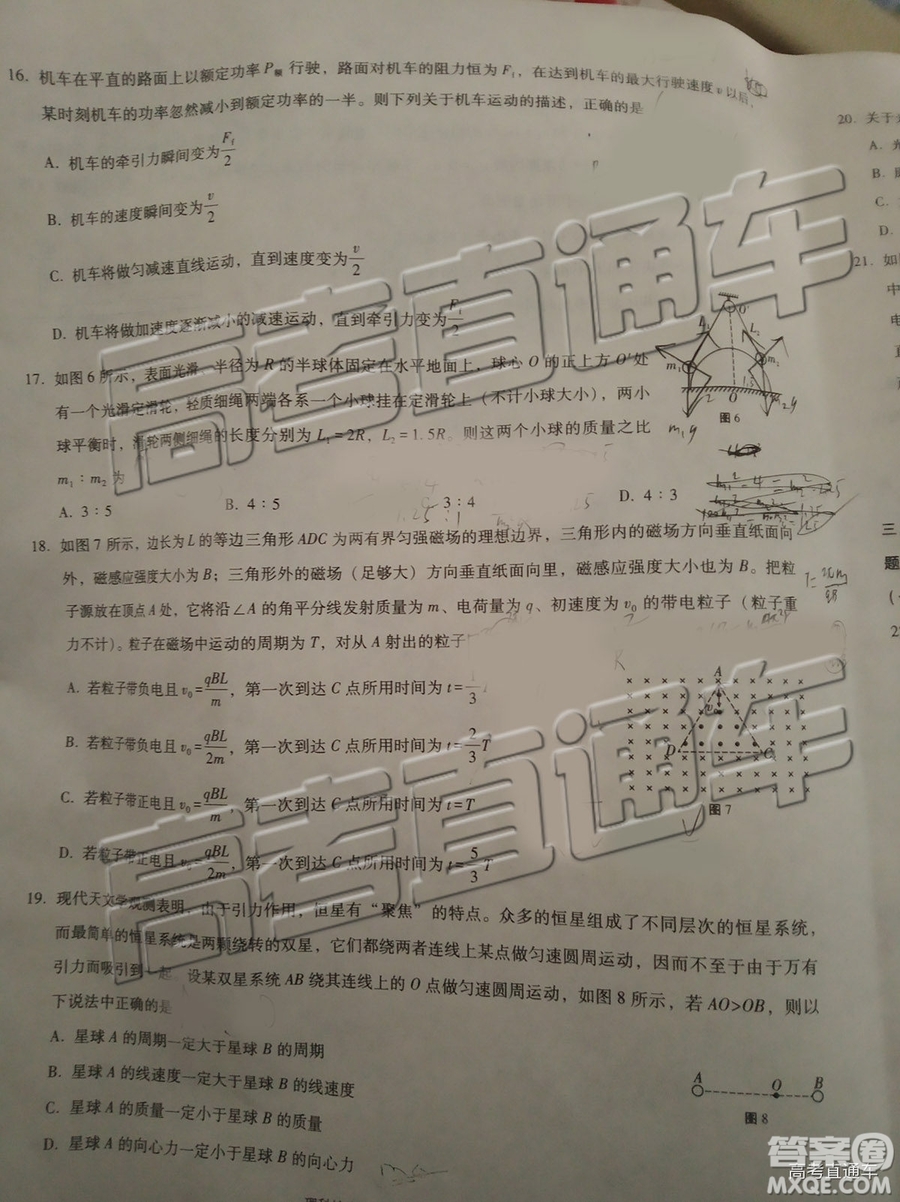 16. 机车在平直的路面上以额定功率P额行驶，路面对机车的阻力恒为Ff，在达到机车的最大行驶速度v以后，
某时刻机车的功率忽然减小到额定功率的一半。则下列关于机车运动的描述，正确的是
A. 机车的牵引力瞬间变为Ff/2
B. 机车的速度瞬间变为v/2
C. 机车将做匀减速直线运动，直到速度变为v/2
D. 机车将做加速度逐渐减小的减速运动，直到牵引力变为Ff/2
17. 如图6所示，表面光滑、半径为R的半球体固定在水平地面上，球心O的正上方O′处
有一个光滑定滑轮，轻质细绳两端各系一个小球挂在定滑轮上（不计小球大小），两小
球平衡时，滑轮两侧细绳的长度分别为L₁=2R，L₂=1.5R。则这两个小球的质量之比
m₁：m₂为
A. 3：5 B. 4：5 C. 3：4 D. 4：3
O′
L₁ L₂
m₁ m₂
O
图6
18. 如图7所示，边长为L的等边三角形ADC为两有界匀强磁场的理想边界，三角形内的磁场方向垂直纸面向
外，磁感应强度大小为B；三角形外的磁场（足够大）方向垂直纸面向里，磁感应强度大小也为B。把粒
子源放在顶点A处，它将沿∠A的角平分线发射质量为m、电荷量为q、初速度为v₀的带电粒子（粒子重
力不计）。粒子在磁场中运动的周期为T，对从A射出的粒子
A. 若粒子带负电且v₀=qBL/m，第一次到达C点所用时间为t=1/3
B. 若粒子带负电且v₀=qBL/2m，第一次到达C点所用时间为t=2/3T
C. 若粒子带正电且v₀=qBL/m，第一次到达C点所用时间为t=T
D. 若粒子带正电且v₀=qBL/2m，第一次到达C点所用时间为t=5/3T
A
v₀
D C
图7
19. 现代天文学观测表明，由于引力作用，恒星有“聚焦”的特点。众多的恒星组成了不同层次的恒星系统，
而最简单的恒星系统是两颗绕转的双星，它们都绕两者连线上某点做匀速圆周运动，因而不至于由于万有
引力而吸引到一起。设某双星系统AB绕其连线上的O点做匀速圆周运动，如图8所示，若AO>OB，则以
下说法中正确的是
A. 星球A的周期一定大于星球B的周期
B. 星球A的线速度一定大于星球B的线速度
C. 星球A的质量一定小于星球B的质量
D. 星球A的向心力一定小于星球B的向心力
A O B
图8
20. 关于
A.
B.
C.
D.
21. 如
中
电
三
题
高考直通车
高考直通车
答案圈
高考直通车
MXQE.COM